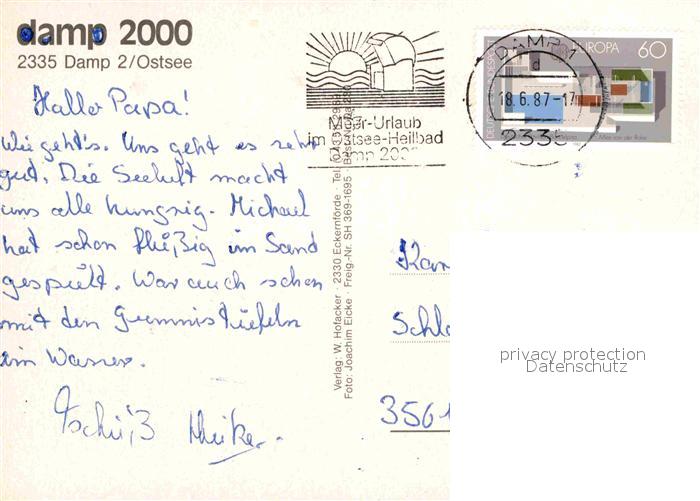 damp 2000
2335 Damp 2/Ostsee
Hallo Papa!
Wie geht's. Uns geht es sehr
gut. Die Seeluft macht
uns alle hungrig. Michael
hat schon fleißig im Sand
gespielt. War auch schon
mit den Gummistiefeln
im Wasser.
Tschüß Heike.
Meer-Urlaub
im Ostsee-Heilbad
Damp 2000
DAMP 1
d
18.6.87-17
2335
EUROPA 60
DEUTSCHE BUNDESPOST
Verlag: W. Hofacker · 2330 Eckernförde · Tel.
Foto: Joachim Eicke · Freig.-Nr. SH 369-1695 · Best.-Nr.
Kar
Schlo
3561
privacy protection
Datenschutz